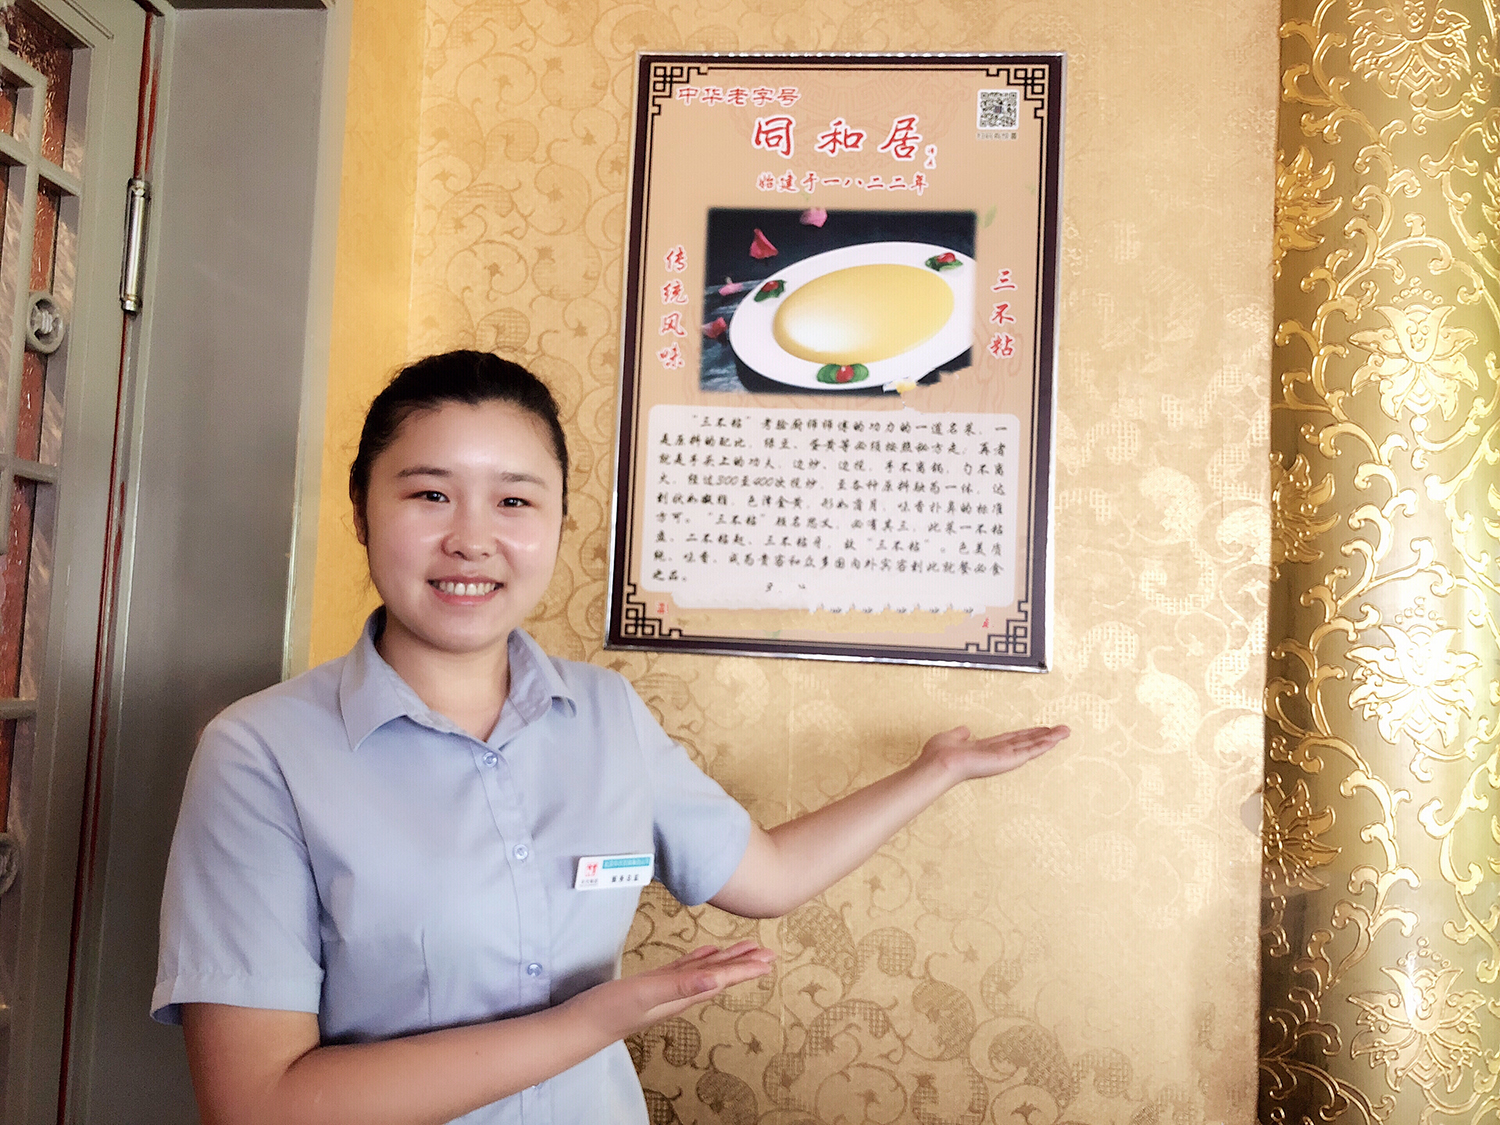 中华老字号
同和居
始建于一八二二年
传统风味
三不粘
“三不粘”考验厨师师傅的功力的一道名菜，一
是原料的配比，绿豆、蛋黄等必须按照秘方走；再者
就是手头上的功夫，边炒、边搅，手不离锅，勺不离
火，经过300至400次搅炒，至各种原料融为一体，达
到状如凝脂，色泽金黄，形如满月，味香朴鼻的标准
方可。“三不粘”顾名思义，必有其三，此菜一不粘
盘、二不粘匙、三不粘牙，故“三不粘”。色美质
纯、味香，成为贵客和众多国内外宾客到此就餐必食
之品。